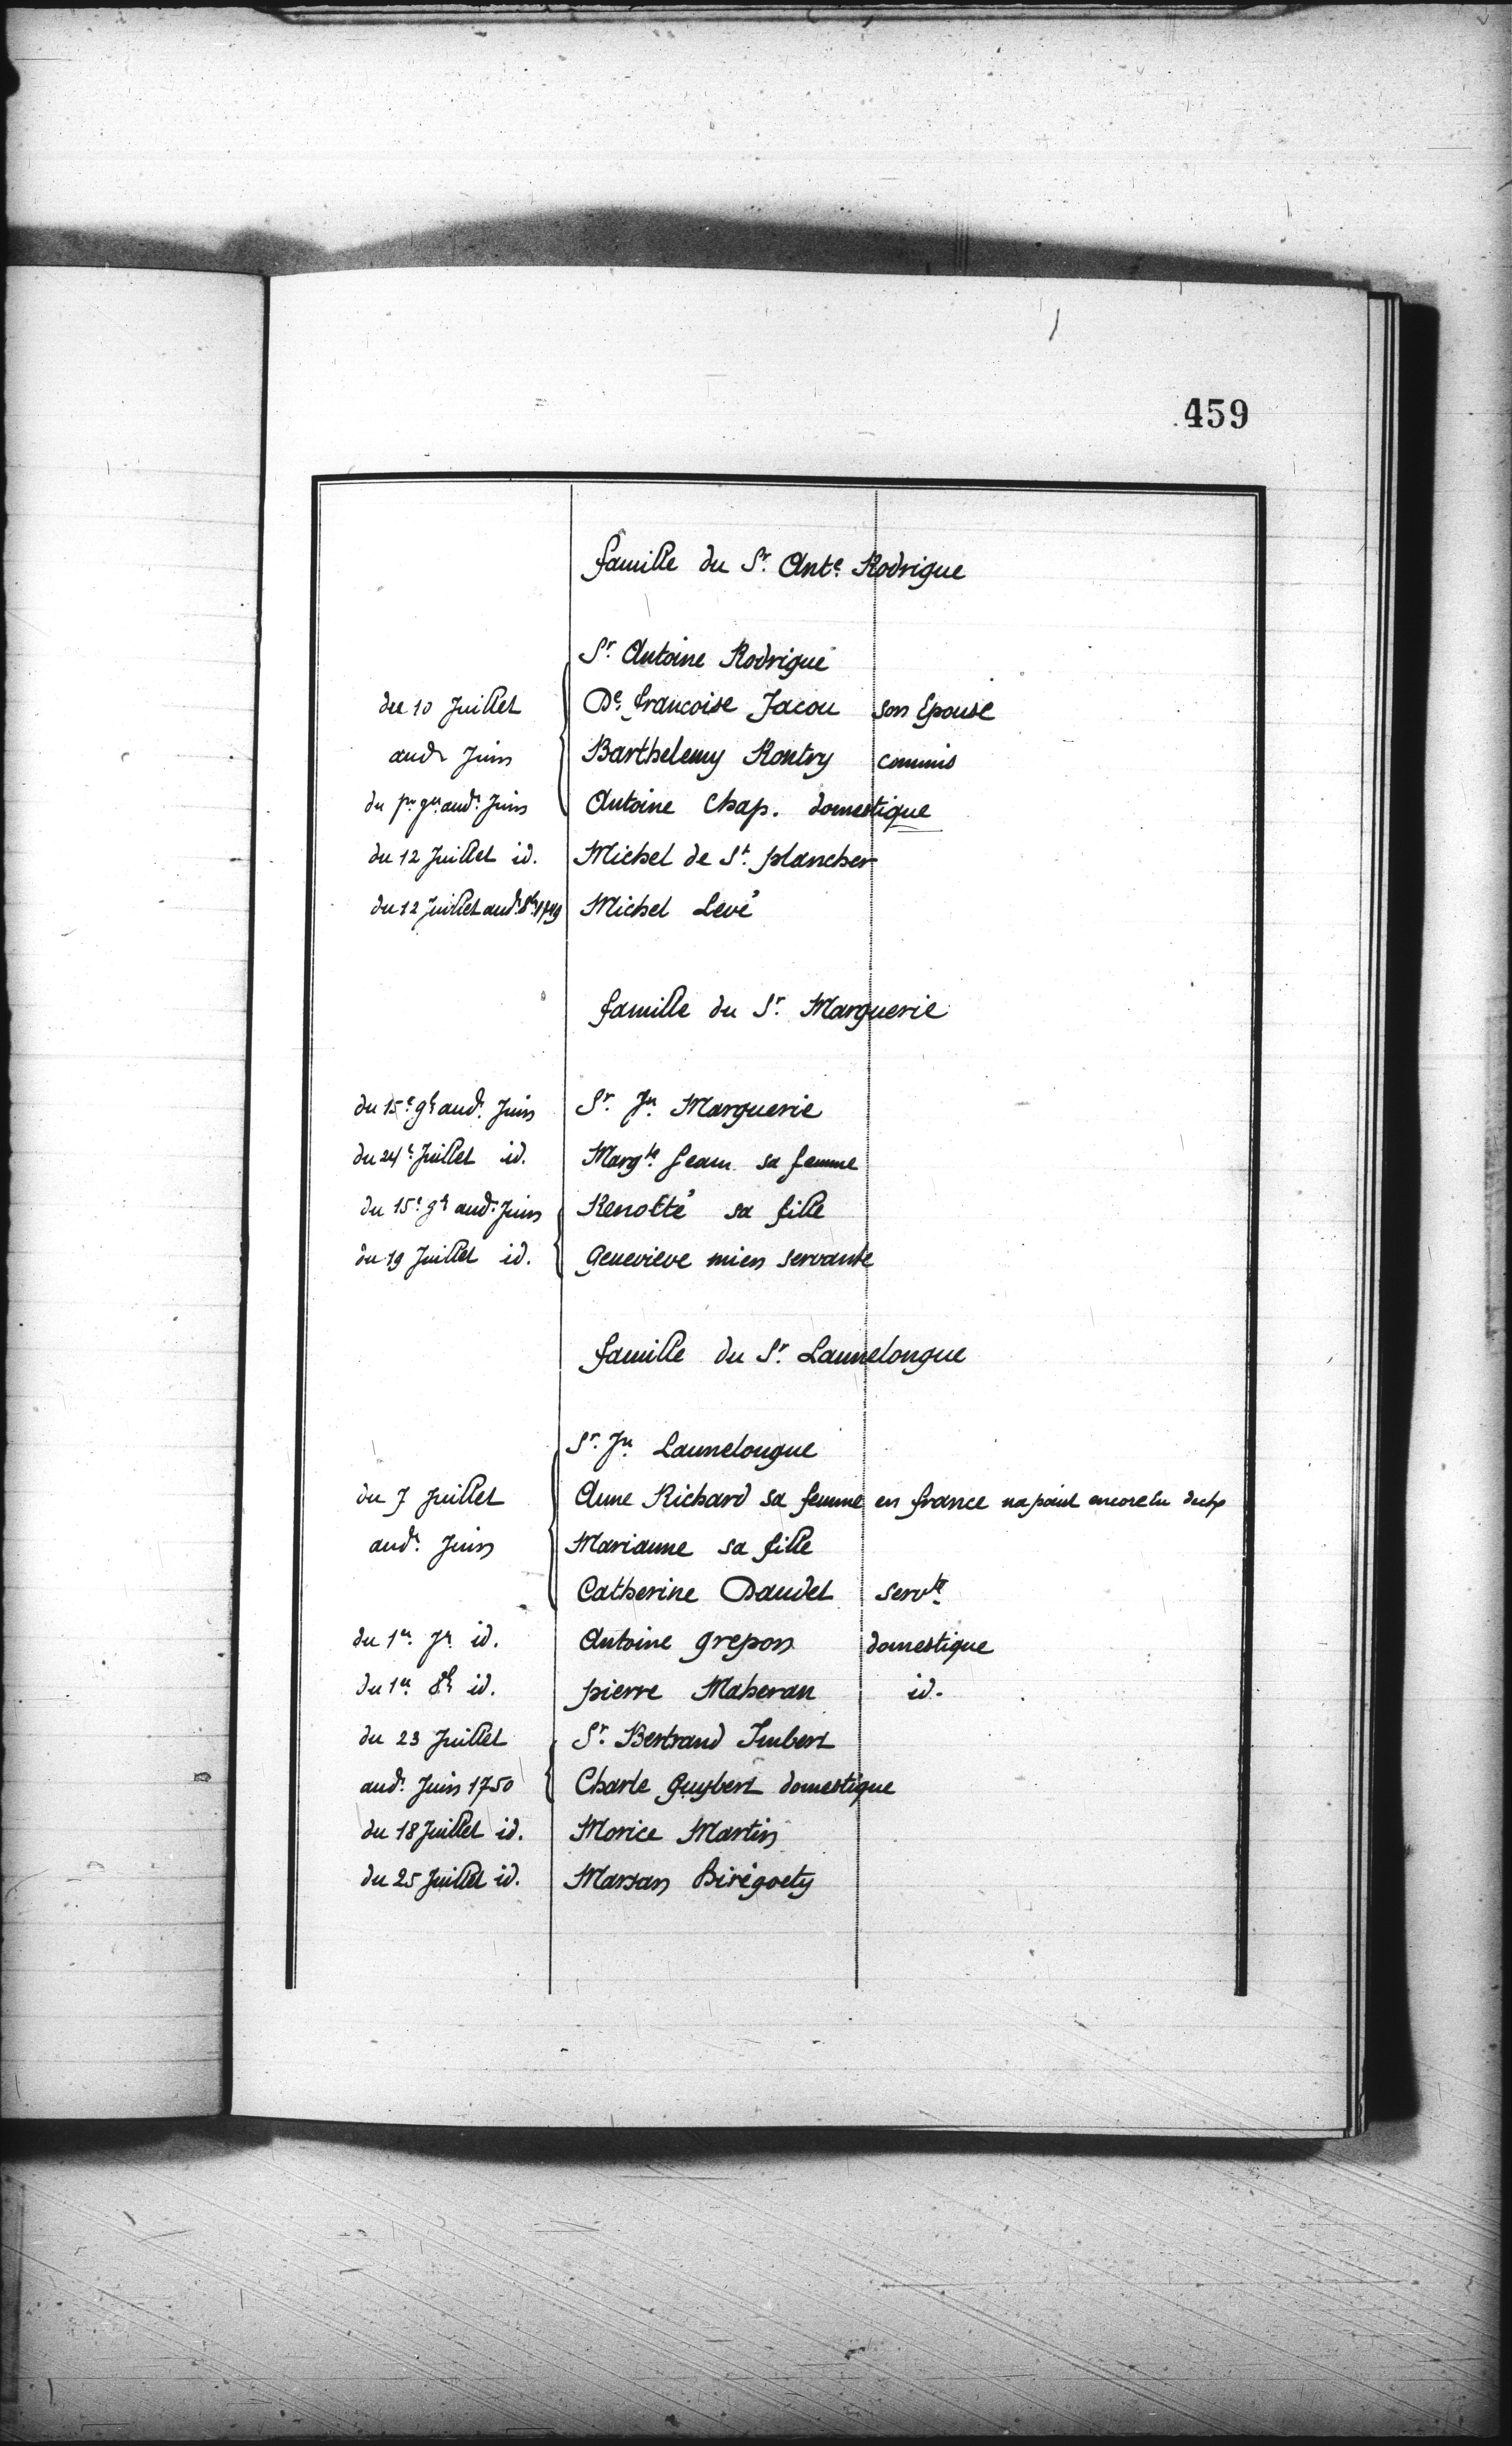 459
famille du Sr. Ante. Rodrigue
Sr. Antoine Rodrigue
du 10 Juillet De. francoise Jacou son Epouse
aud. Juin Barthelemy Rontry commis
du pr. 9re. aud. Juin Antoine Chap. domestique
du 12 Juillet id. Michel de St. plancher
du 12 Juillet aud. 8bre 1749 Michel Levé
famille du Sr. Marguerie
du 15e. 9b. aud. Juin Sr. Jn. Marguerie
du 24e. Juillet id. Margte. Jean sa femme
du 15e. 9b. aud. Juin Renotté sa fille
du 19 Juillet id. Genevieve mien servante
famille du Sr. Lannelongue
Sr. Jn. Lannelongue
du 7 Juillet Anne Richard sa femme en france na point encore lu
aud. Juin Marianne sa fille
Catherine Daudet servte.
du 1er. 7r. id. Antoine grepon domestique
du 1er. 8b. id. pierre Maheran id.
du 23 Juillet Sr. Bertrand Imbert
aud. Juin 1750 Charle Guybert domestique
du 18 Juillet id. Morice Martin
du 25 Juillet id. Marsan Birégoety